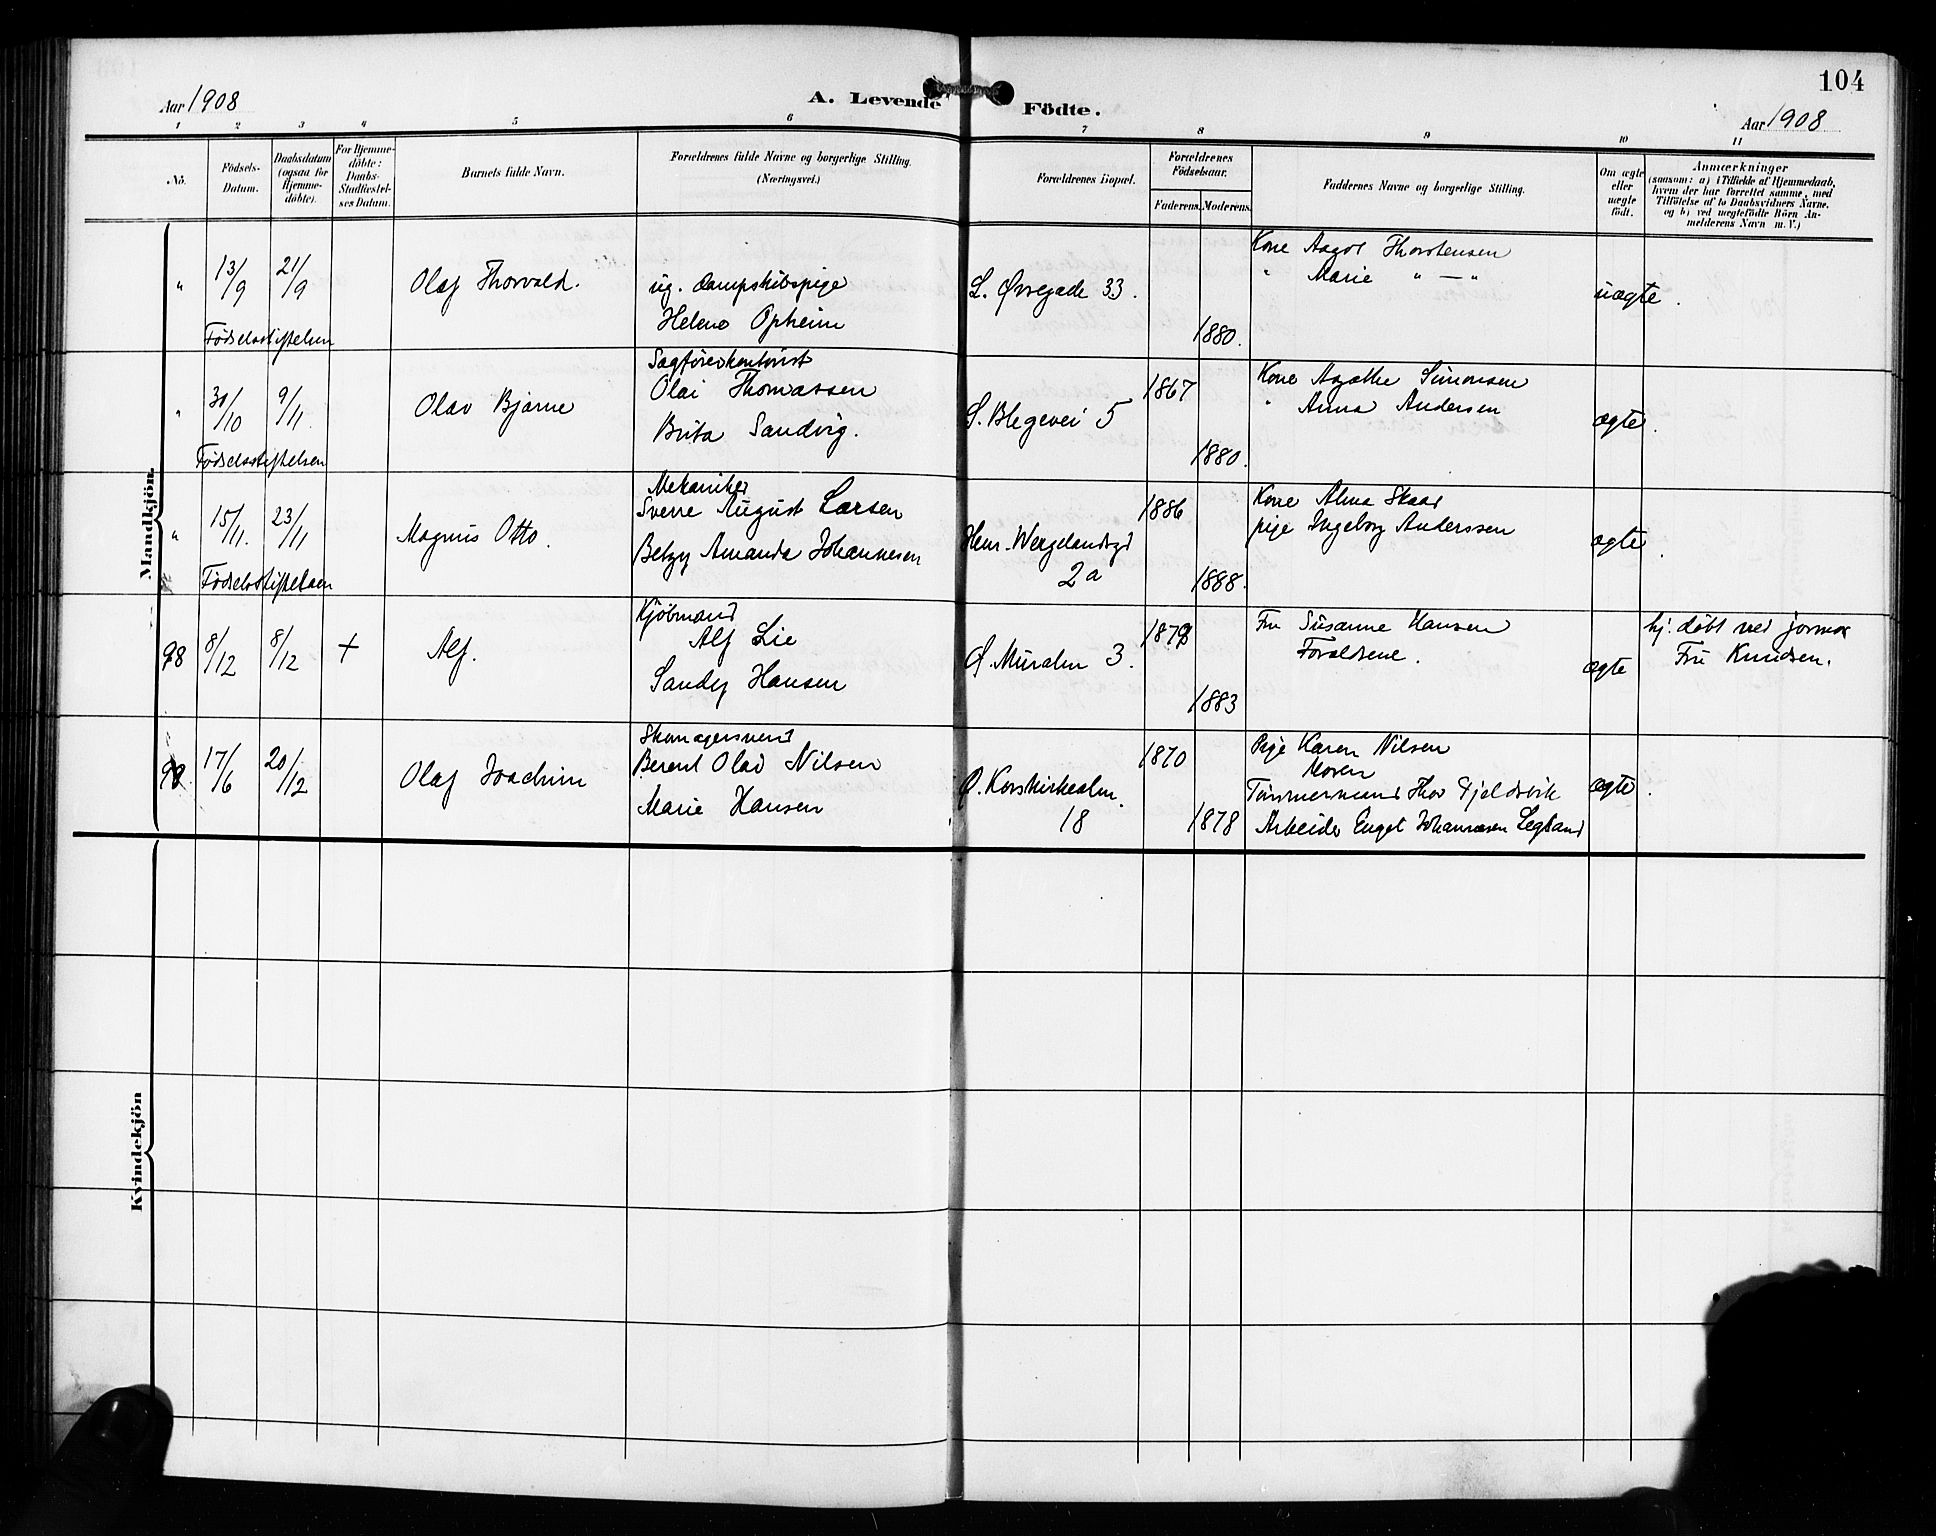 104
Aar 1908
A. Levende Födte.
Aar 1908
1 2 3 4 5 6 7 8 9 10 11
No.
Födsels-
Datum.
Daabsdatum
(ogsaa for
Hjemme-
döbte).
For Hjemme-
döbte:
Daabs-
Stadfæstel-
ses Datum.
Barnets fulde Navn.
Forældrenes fulde Navne og borgerlige Stilling.
(Næringsvei.)
Forældrenes Bopæl.
Forældrenes
Födselsaar.
Faderens. Moderens.
Faddernes Navne og borgerlige Stilling.
Om ægte
eller
uægte
födt.
Anmærkninger
(saasom: a) i Tilfælde af Hjemmedaab,
hvem der har forrettet samme, med
Tilföielse af to Daabsvidners Navne.
og b) ved uægtefödte Börn An-
melderens Navn m. V.)
Mandkjön.
" 13/9 21/9
Fødselsstiftelsen
Olaf Thorvald.
ug. dampskibspige
Helene Opheim
L. Øvregade 33.
1880.
Kone Aagot Thorstensen
" Marie " — "
uægte.
" 30/10 9/11.
Fødselsstiftelsen
Olav Bjarne
Sagførerkontorist
Olai Thomassen
Brita Sandvig.
S. Blegevei 5
1867
1880.
Kone Agathe Simonsen
" Anna Andersen
ægte.
" 15/11. 23/11
Fødselsstiftelsen
Magnus Otto.
Mekaniker
Sverre August Larsen
Betzy Amanda Johannesen
Henr. Wergelandsgd
2a
1886
1888.
Kone Alma Skaar
pige Ingeborg Anderssen
ægte.
98 8/12 8/12 +
Alf.
Kjøbmand
Alf Lie
Sandy Hansen
Ø. Muralm 3.
1883
Fru Susanne Hansen
Forældrene.
ægte
hj. døbt ved jormor
Fru Knudsen.
17/6 20/12
Olaf Joachim
Skomagersvend
Berent Olai Nilsen
Marie Hansen
Ø. Korskirkealm.
18
1870
1878
Pige Karen Nilsen
Moren
Tømmermand Thor Gjeldsvik
Arbeider Engel Johannesen Legland
ægte.
Kvindekjön